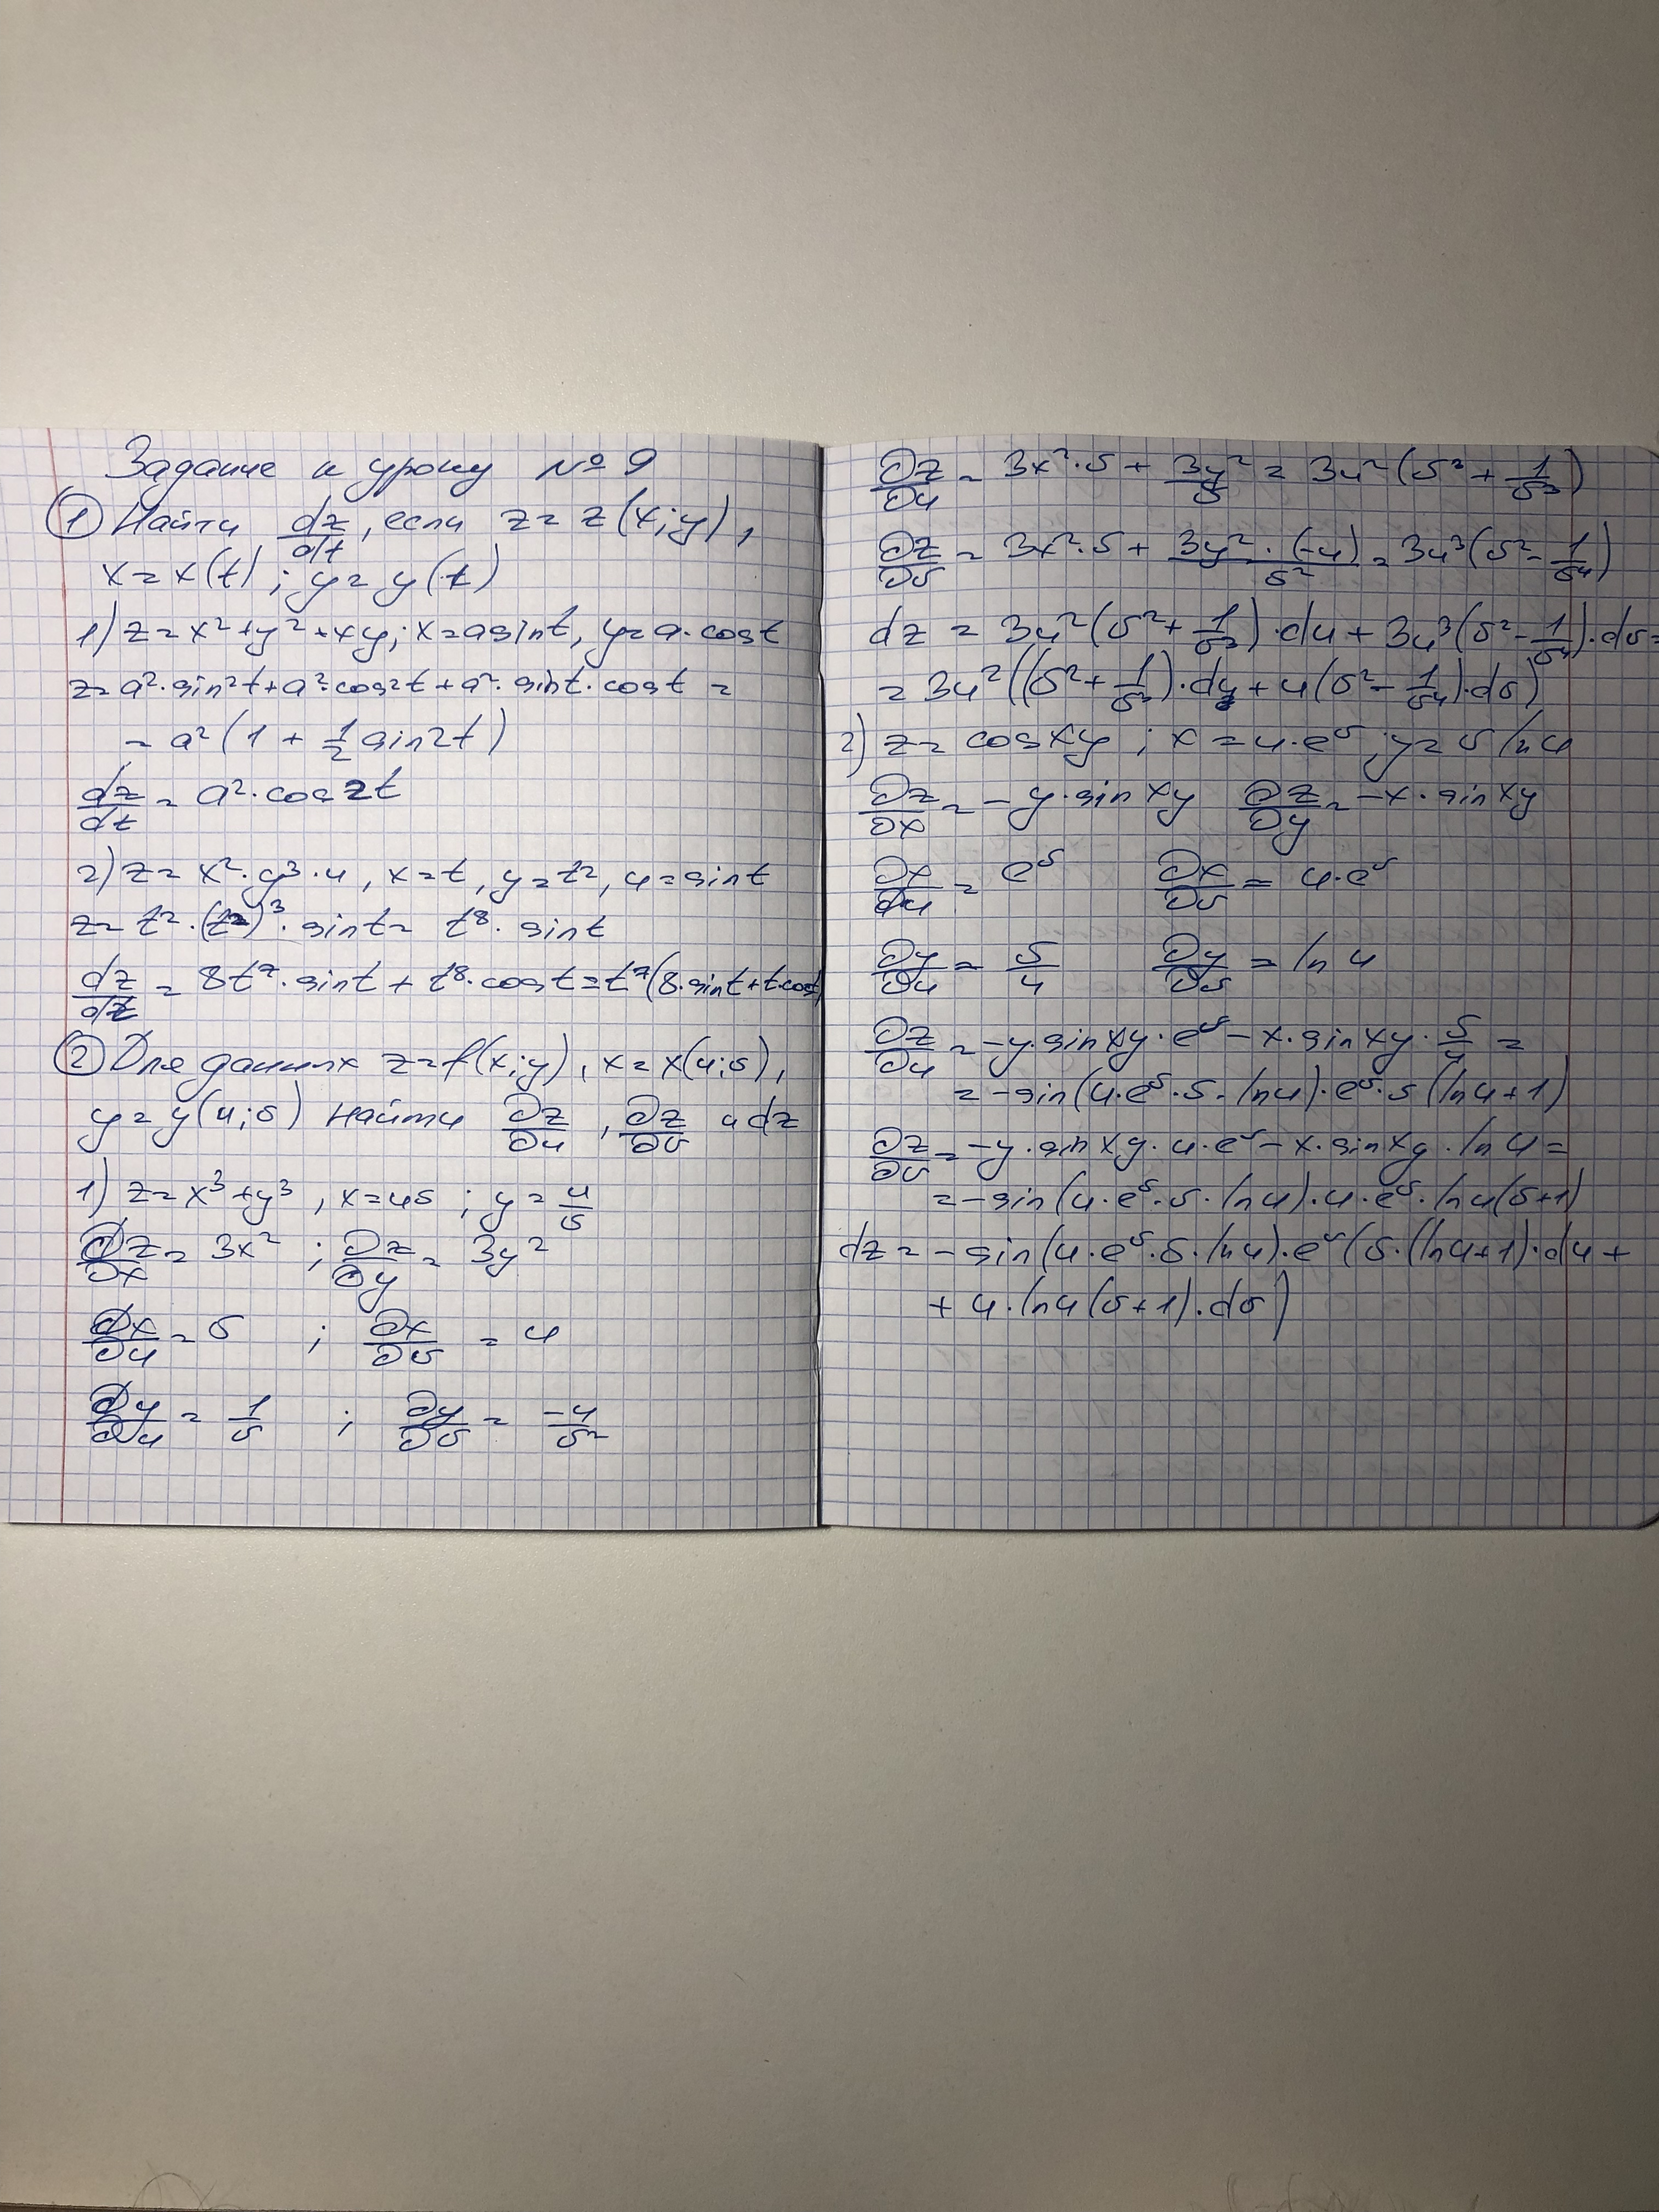 Задание к уроку №9
① Найти dz/dt, если z = z(x;y),
x = x(t) ; y = y(t)
1) z = x² + y² + xy; x = a sin t, y = a · cos t
z = a² · sin²t + a² · cos²t + a² · sin t · cos t =
= a² (1 + 1/2 sin 2t)
dz/dt = a² · cos 2t
2) z = x² · y³ · u, x = t, y = t², u = sin t
z = t² · (t²)³ · sin t = t⁸ · sin t
dz/dt = 8t⁷ · sin t + t⁸ · cos t = t⁷ (8 · sin t + t · cos t)
② Для данных z = f(x;y), x = x(u;v),
y = y(u;v) найти ∂z/∂u, ∂z/∂v и dz
1) z = x³ + y³, x = uv ; y = u/v
∂z/∂x = 3x² ; ∂z/∂y = 3y²
∂x/∂u = v ; ∂x/∂v = u
∂y/∂u = 1/v ; ∂y/∂v = -u/v²
∂z/∂u = 3x² · v + 3y²/v = 3u² (v³ + 1/v³)
∂z/∂v = 3x² · v + 3y² · (-u)/v² = 3u³ (v² - 1/v⁴)
dz = 3u² (v² + 1/v³) · du + 3u³ (v² - 1/v⁴) · dv =
= 3u² ((v² + 1/v³) · du + u (v² - 1/v⁴) · dv)
2) z = cos xy ; x = u · eᵛ ; y = v ln u
∂z/∂x = -y · sin xy ∂z/∂y = -x · sin xy
∂x/∂u = eᵛ ∂x/∂v = u · eᵛ
∂y/∂u = v/u ∂y/∂v = ln u
∂z/∂u = -y · sin xy · eᵛ - x · sin xy · v/u =
= -sin (u · eᵛ · v · ln u) · eᵛ · v (ln u + 1)
∂z/∂v = -y · sin xy · u · eᵛ - x · sin xy · ln u =
= -sin (u · eᵛ · v · ln u) · u · eᵛ · ln u (v + 1)
dz = -sin (u · eᵛ · v · ln u) · eᵛ (v · (ln u + 1) · du +
+ u · ln u (v + 1) · dv)